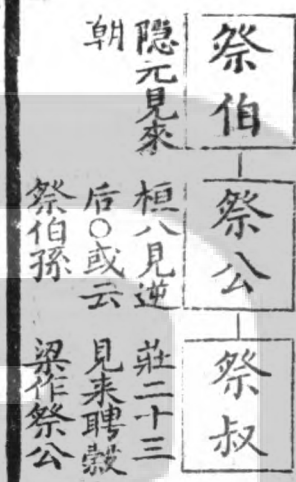 祭伯
隱元見來
朝
祭公
桓八見逆
后○或云
祭伯孫
祭叔
莊二十三
見来聘榖
梁作祭公